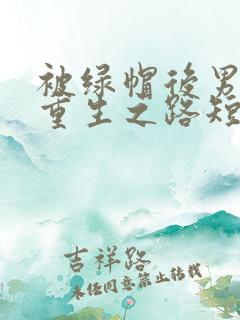 被绿帽后男
重生之路短
吉祥路
未经同意禁止转载